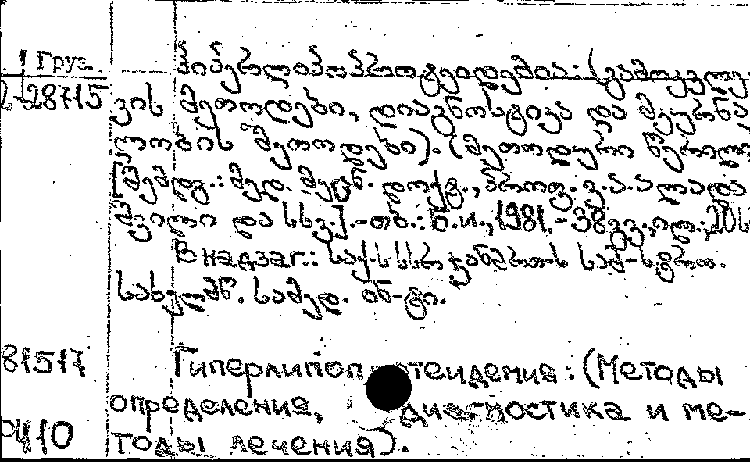 1 Груз.
2-28715
ჰიპერლიპოპროტეიდემია: (გამოკვლე
ვის მეთოდები, დიაგნოსტიკა და მკურნა
ლობის მეთოდები). (მეთოდური წერილი
[შემდგ.: მედ. მეცნ. დოქტ., პროფ. გ.ა.ალადა
შვილი და სხვ.].-თბ.: Б.и., 1981.-38გვ., ილ.; 20ს
В надзаг.: საქ. სსრ ჯანმრთ-ს სამ-სტრო.
სახელმწ. სამედ. ინ-ტი.
81517 Гиперлипоп теидемия: (Методы
определения, диагностика и ме-
410 тоды лечения).